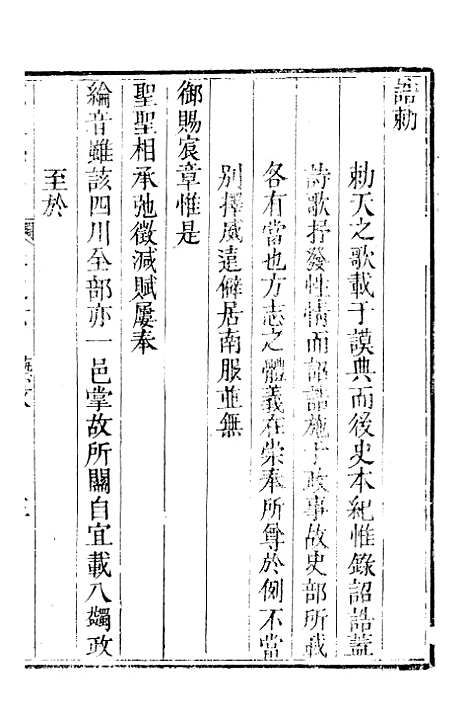 誥勅
勅天之歌載于謨典而後史本紀惟錄詔誥蓋
詩歌抒發性情而詔誥施于政事故史部所載
各有當也方志之體義在崇奉所尊於例不當
別擇威遠僻居南服並無
御賜宸章惟是
聖聖相承弛徵減賦屢奉
綸音雖該四川全部亦一邑掌故所關自宜載入蠲政
至於